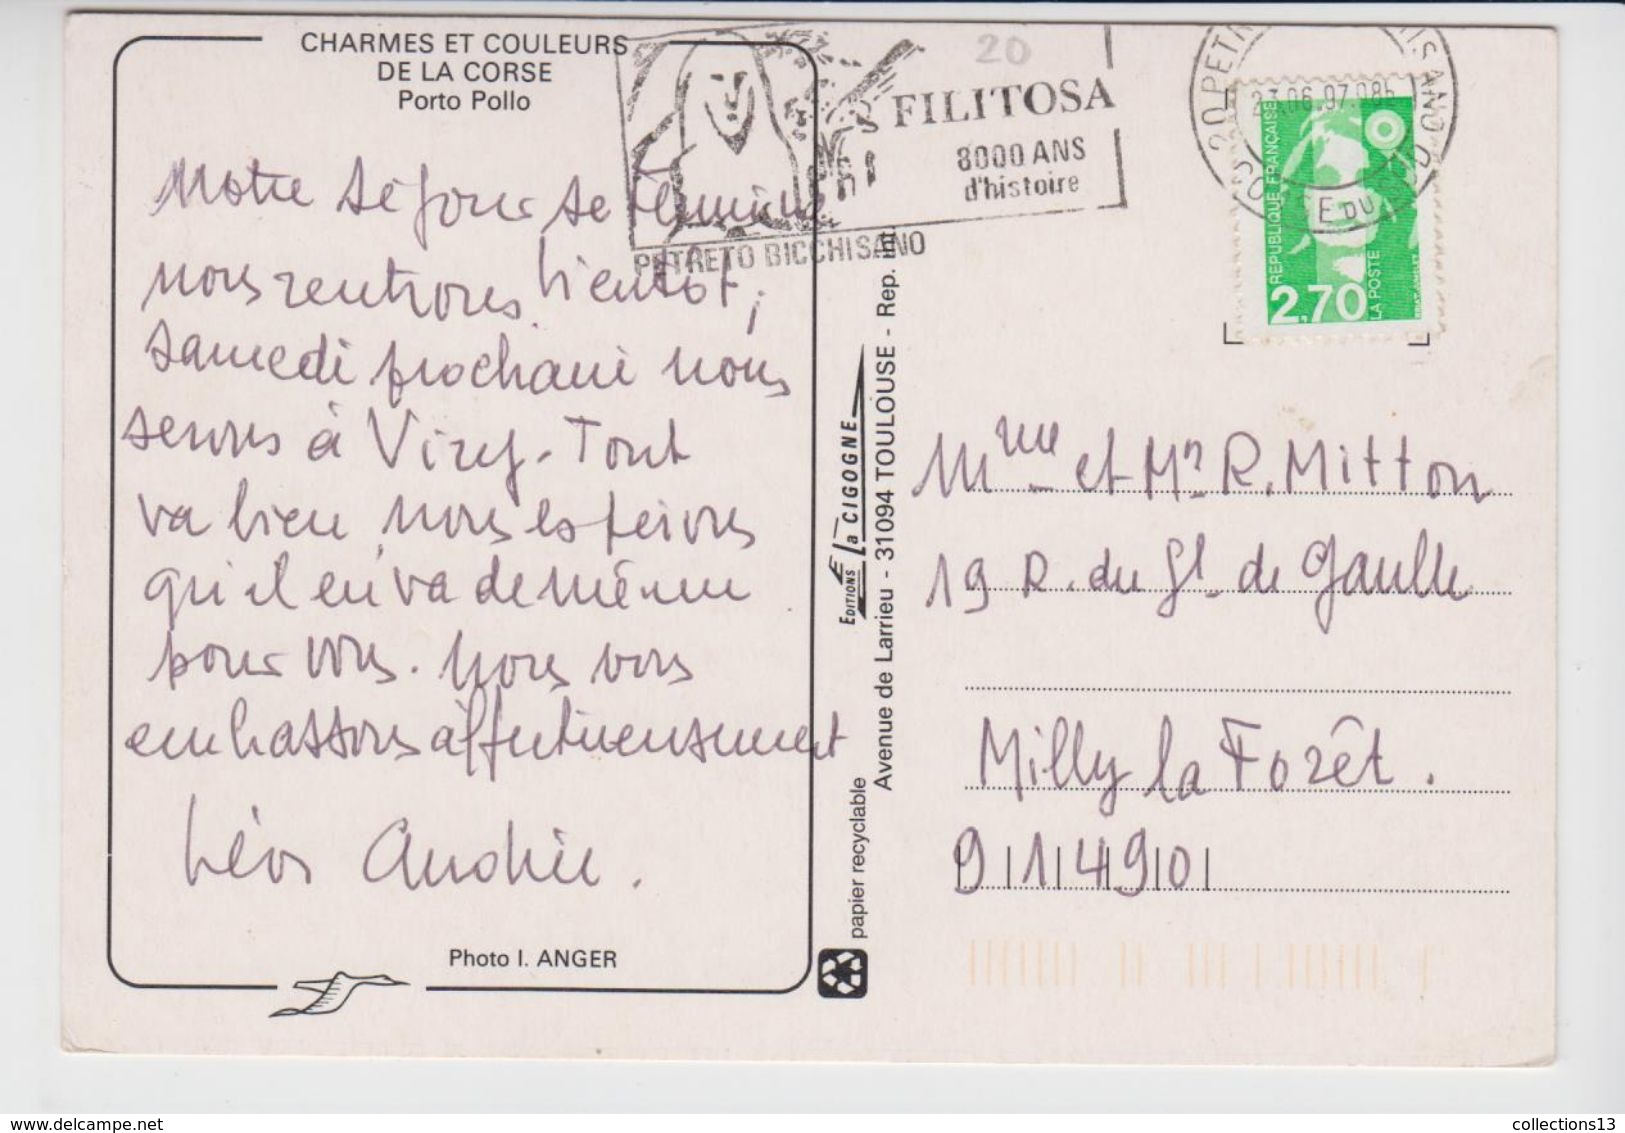 CHARMES ET COULEURS
DE LA CORSE
Porto Pollo
Notre séjour se termine
nous rentrons bientôt,
samedi prochain nous
serons à Viry. Tout
va bien, nous espérons
qu'il en va de même
pour vous. Nous vous
embrassons affectueusement
Léon Andrée.
Photo I. ANGER
20
FILITOSA
8000 ANS
d'histoire
PETRETO BICCHISANO
23.06.97.08h
CORSE DU SUD
REPUBLIQUE FRANÇAISE
2,70
LA POSTE
EDITIONS La CIGOGNE
Avenue de Larrieu - 31094 TOULOUSE - Rep. int.
papier recyclable
Mme et Mr R. Mitton
19 R. du Gl de Gaulle
Milly la Forêt.
91490
collections13